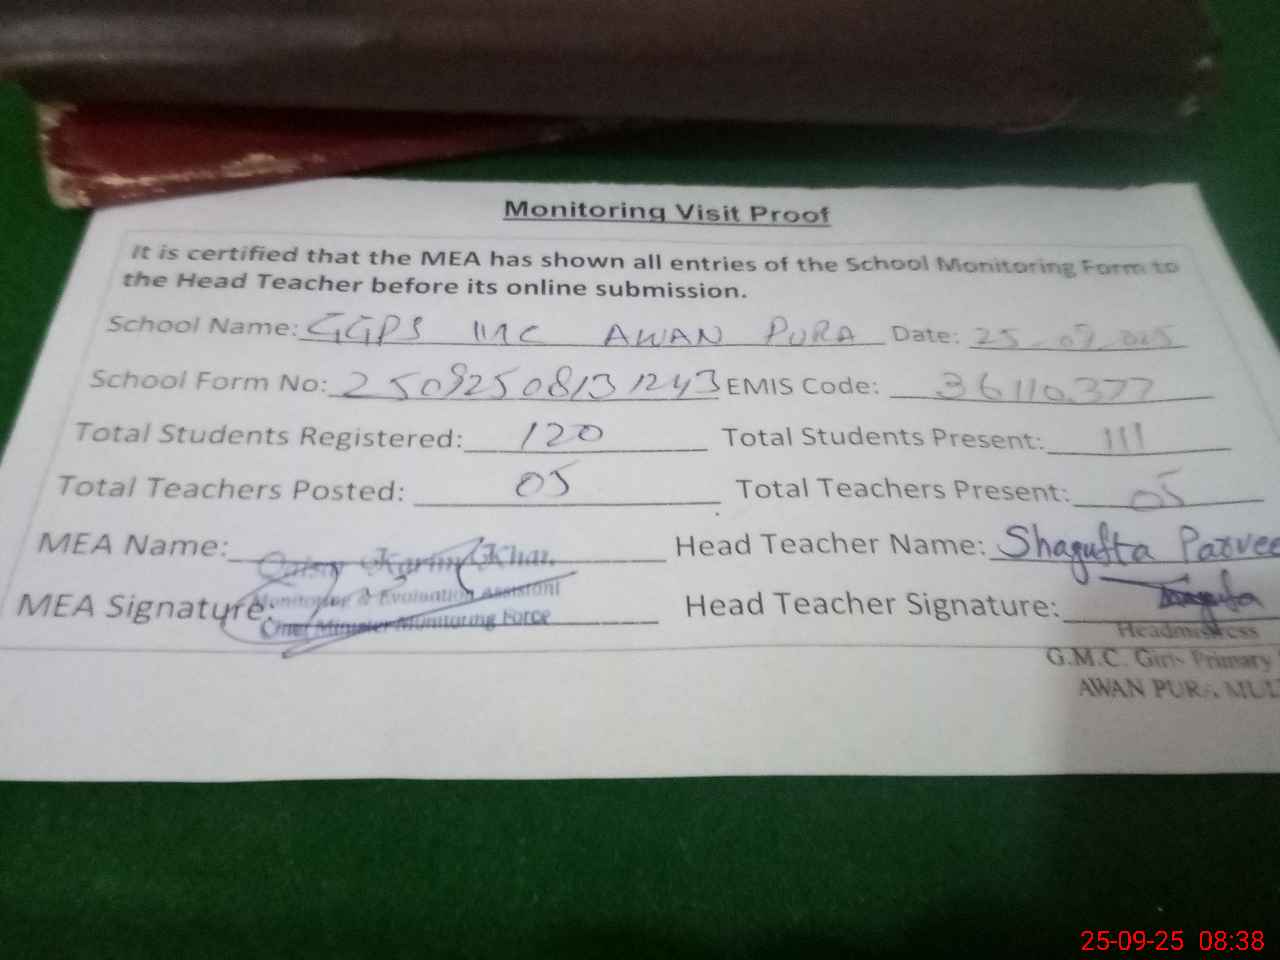 Monitoring Visit Proof
It is certified that the MEA has shown all entries of the School Monitoring Form to
the Head Teacher before its online submission.
School Name: GGPS MC AWAN PURA Date: 25-09-2025
School Form No: 25092508131243 EMIS Code: 36110377
Total Students Registered: 120 Total Students Present: 111
Total Teachers Posted: 05 Total Teachers Present: 05
MEA Name: Karim Khan Head Teacher Name: Shagufta Parvee
MEA Signature Head Teacher Signature:
Monitoring & Evaluation Assistant
Chief Minister Monitoring Force
Headmistress
G.M.C. Girls Primary
AWAN PURA MUL
25-09-25 08:38